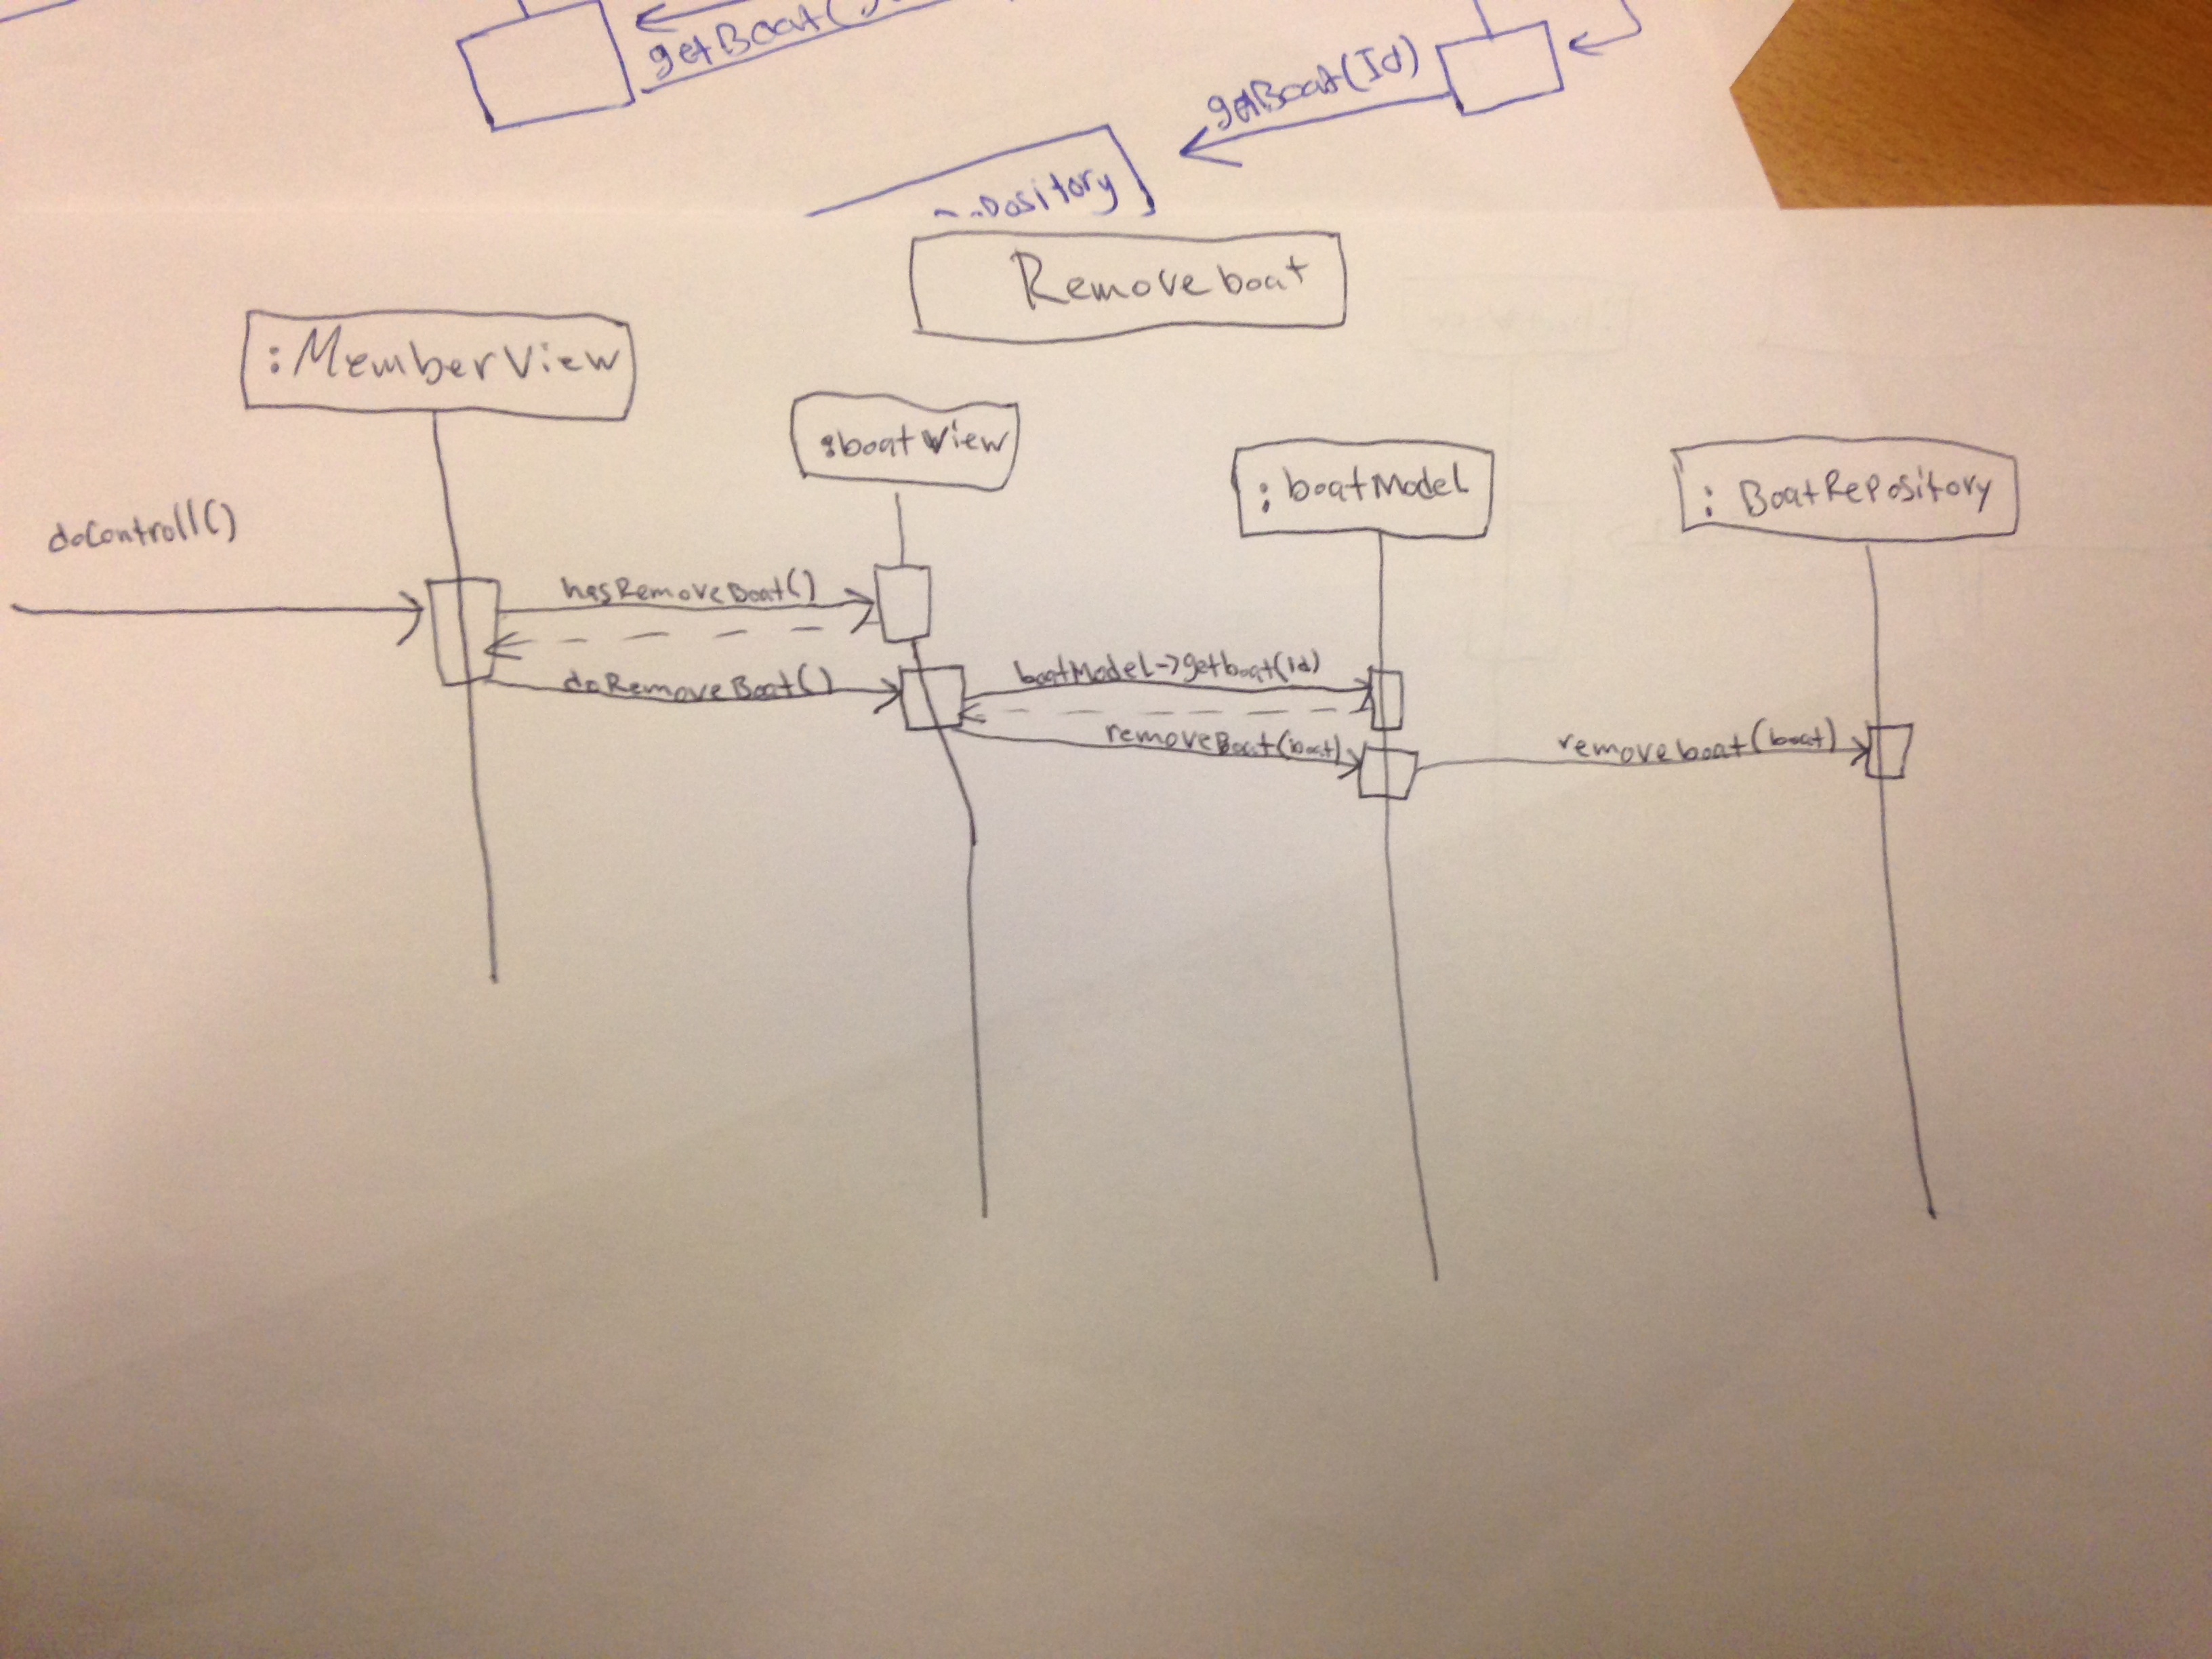 getBoat(
getBoat(Id)
Remove boat
:MemberView
:boatView
:boatModel
: BoatRepository
doControll()
hasRemoveBoat()
doRemoveBoat()
boatModel->getboat(Id)
removeBoat(boat)
removeboat(boat)